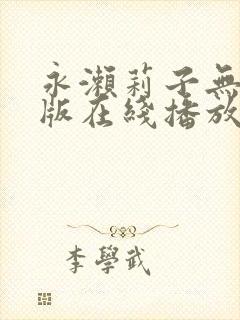 永瀨莉子無
版在綫播放
李學武